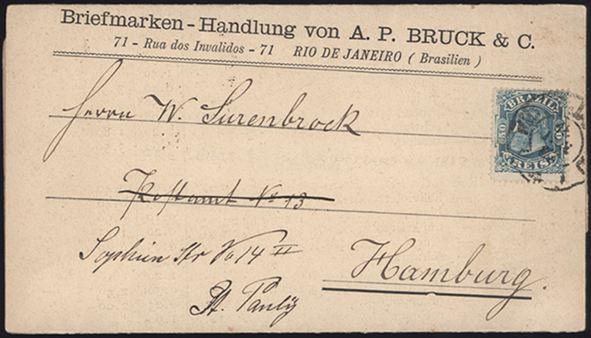 Briefmarken-Handlung von A. P. BRUCK & C.
71 - Rua dos Invalidos - 71 RIO DE JANEIRO ( Brasilien )
Herrn W. Surenbrock
Postamt No 13
Sophien Str No 14 II
St. Pauly
Hamburg.
BRAZIL
50 50
REIS